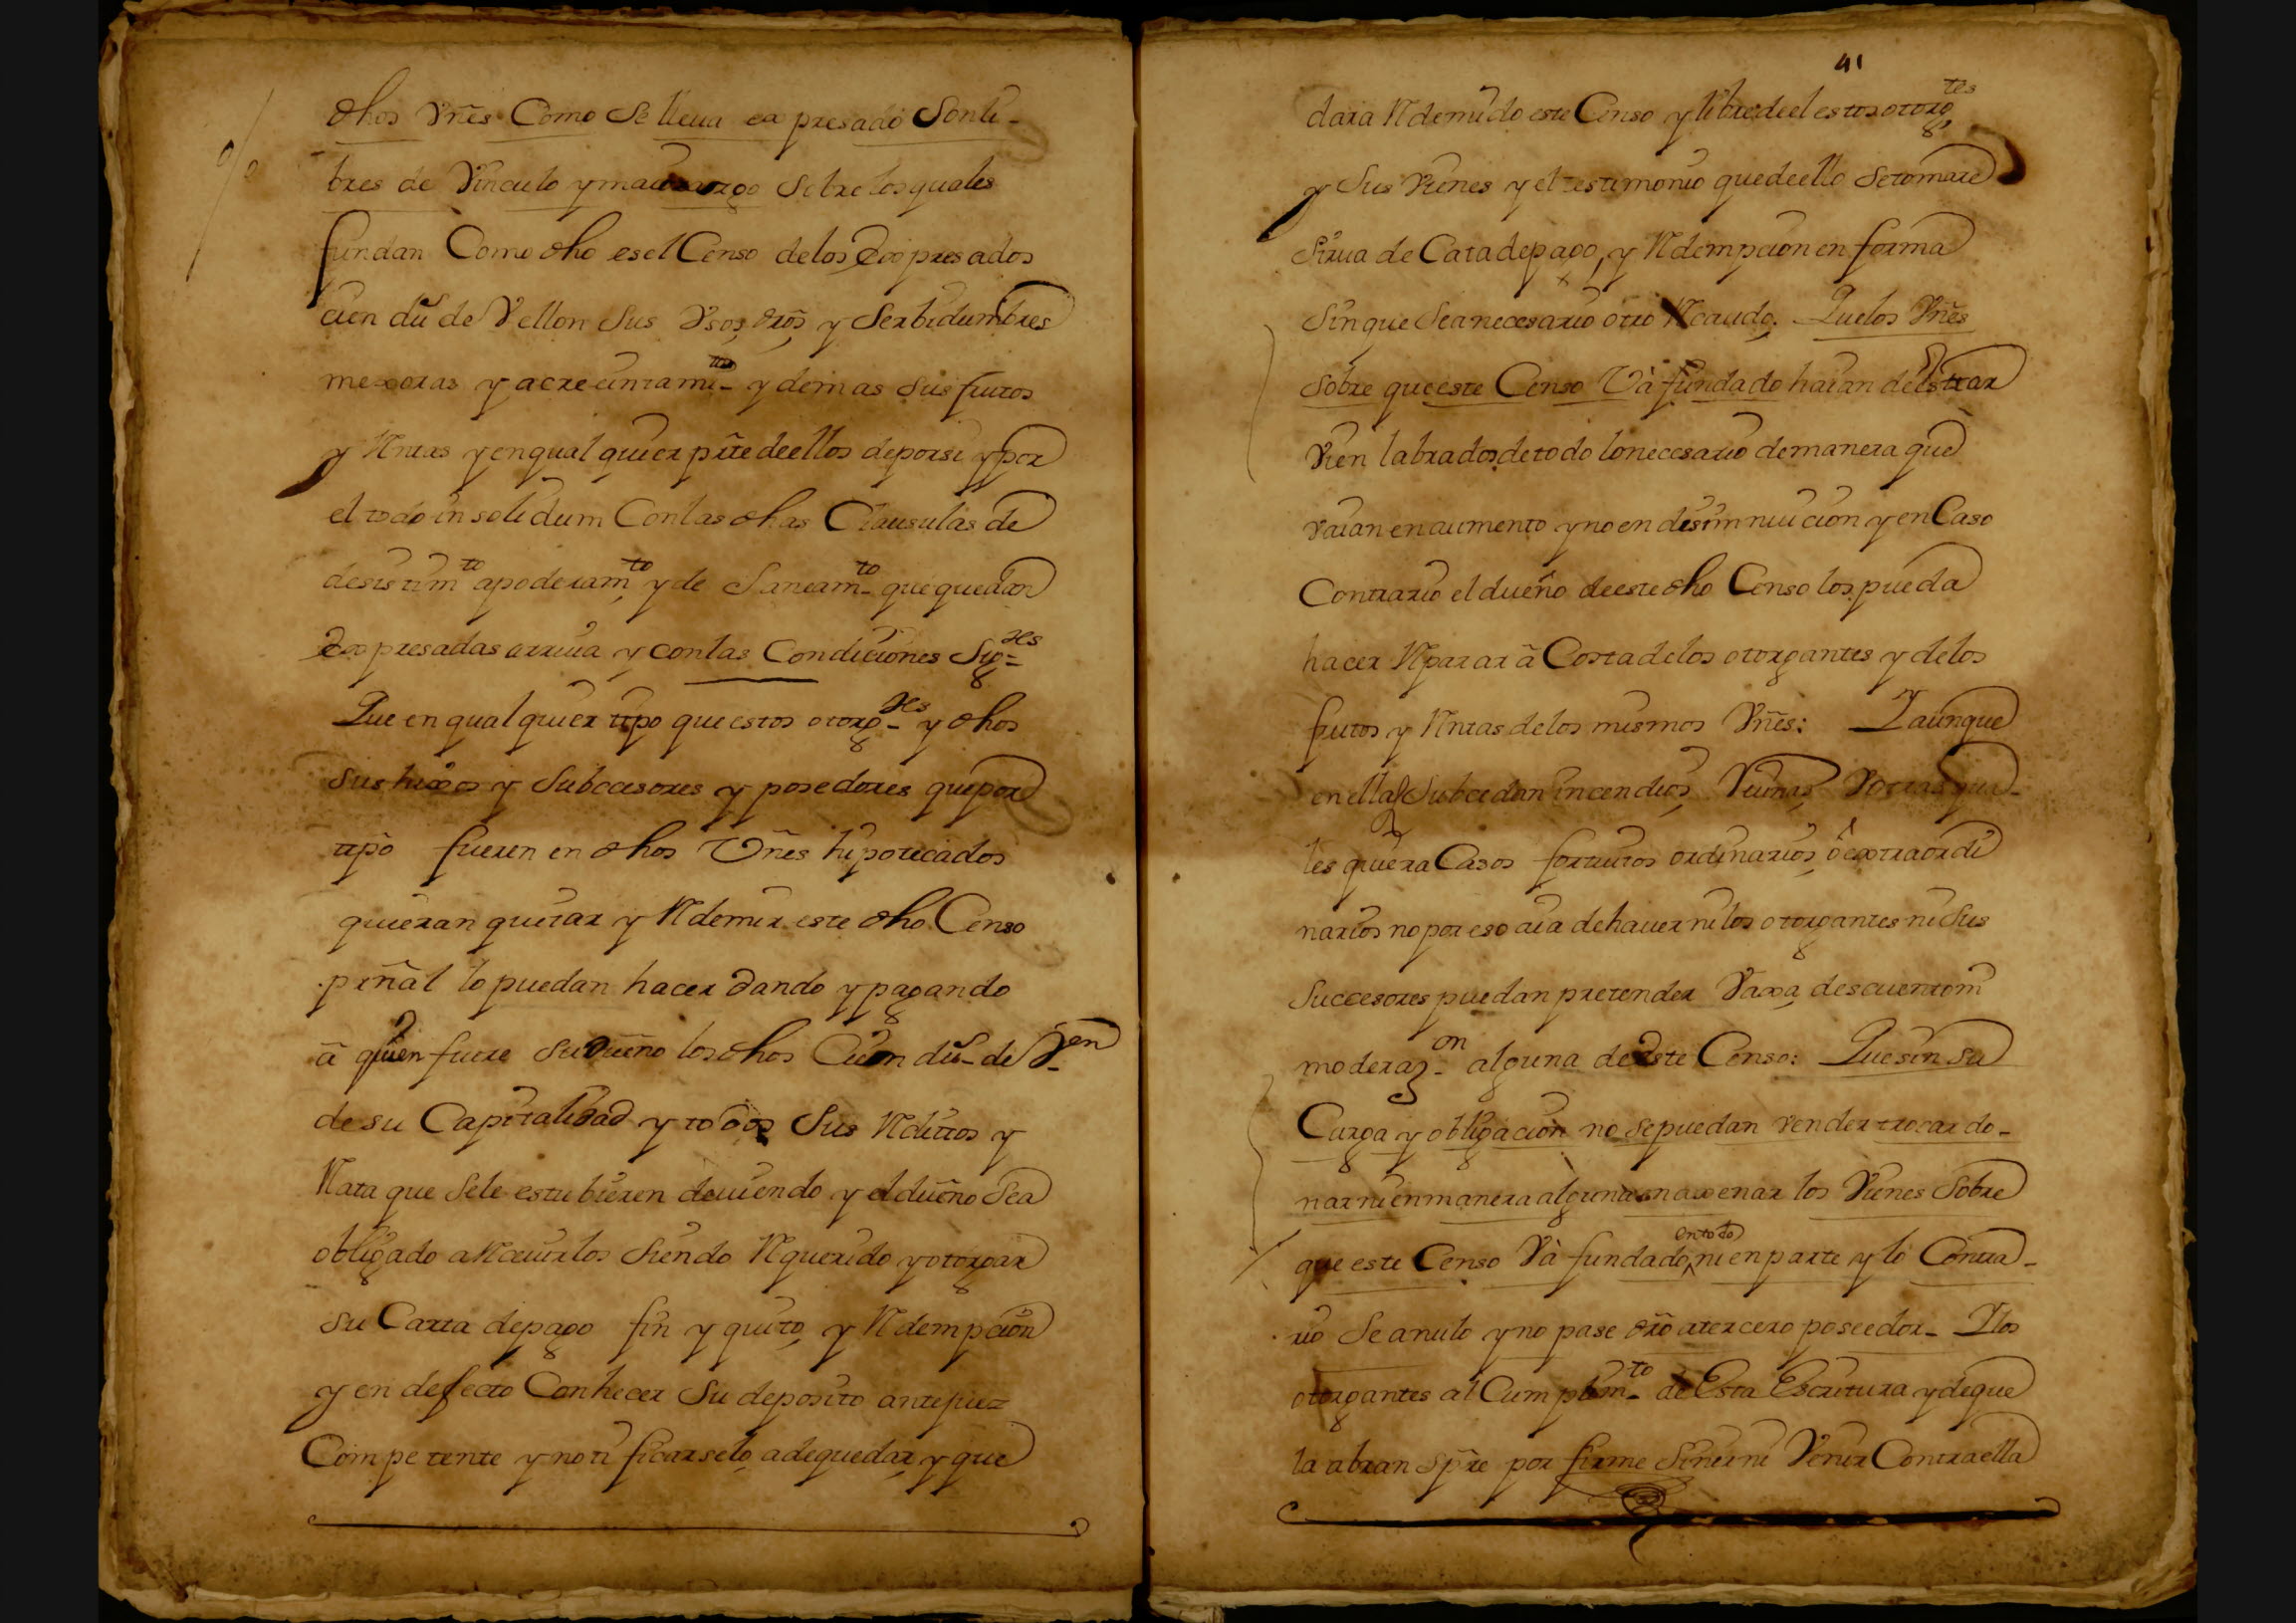 dhos Vñes Como Se lleua expresado Son li-
bres de Vinculo y maiorazgo Sobre los quales
fundan Como dho es el Censo de los Expresados
cien dus de Vellon Sus Vsos, dros, y Serbidumbres
mexoras y acrecentami-tos y demas Sus frutos
y Rentas y en qualquier pñte de ellos de por si y por
el todo in solidum Con las dhas Clausulas de
desistimto apoderamto, y de Saneamto- que quedan
Expresadas arriua y con las Condiciones Sigtes=
Que en qualquier tipo que estos otorgtes- y dhos
Sus hixos y Subcesores y posedores que por
tipo fueren en dhos Vñes hipotecados
quieran quitar y Redemir este dho Censo
prñal lo puedan hacer dando y pagando
â quien fuere su dueño los dhos Cien dus- de Von
de su Capitalidad y todos Sus Reditos y
Rata que Se le estubieren deuiendo y el dueño Sea
obligado a Receuirlos Siendo Requerido y otorgar
Su Carta de pago fin y quito, y Redempcion
y en defecto Con hecer Su deposito ante juez
Competente y notificarselo, a de quedar, y que
41
dara Redemido este Censo y libre de el estos otorgtes
y Sus Vienes y el testimonio que de ello Se tomare
Sirua de Cata de pago, y Redempcion en forma
Sin que Sea necesario otro Recaudo. Que los Vñes
Sobre que este Censo Và fundado haian de Estar
Vien labrados, de todo lo necesario de manera que
vaian en aumento y no en disminuicion y en Caso
Contrario el dueño de este dho Censo los pueda
hacer Reparar â Costa de los otorgantes y de los
frutos y Rentas de los mismos Vñes: Y aunque
en ellas Subcedan incendios, Ruinas, V otras qua-
les quiera Casos fortuitos ordinarios, ô extraordi
narios no por eso aia de hauer ni los otorgantes ni Sus
Succesores puedan pretender Vaxa, descuento ni
moderazon- alguna de Este Censo: Que sin su
Carga y obligacion no se puedan vender trocar do-
nar ni en manera alguna enaxenar los Vienes Sobre
en todo
que este Censo Và fundado, ni en parte y lo Contra-
rio Se anulo y no pase dro a tercero poseedor- Y los
otorgantes al Cumplimto- de Esta Escritura y de que
la abran spre por firme Sin ir ni Venir Contra ella